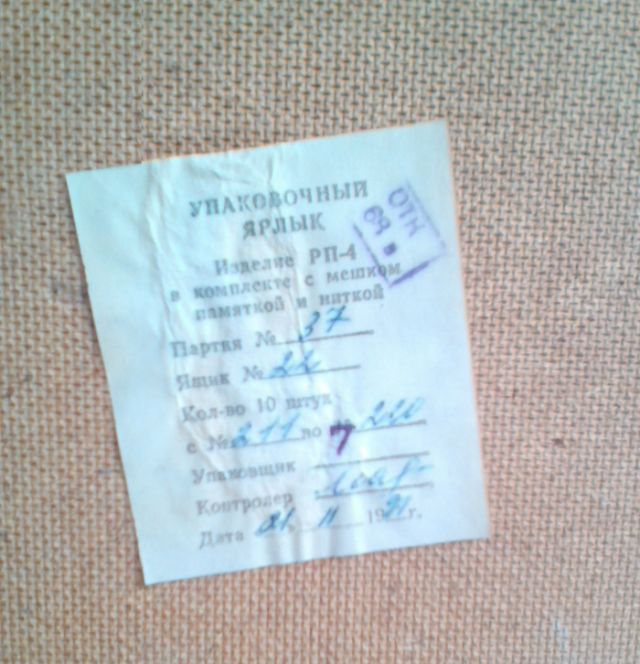 УПАКОВОЧНЫЙ
ЯРЛЫК
ОТК
69
Изделие РП-4
в комплекте с мешком
памяткой и ниткой
Партия № 37
Ящик № 22
Кол-во 10 штук
с № 211 по № 220
Упаковщик 7
Контролер
Дата 21. 11 1991 г.